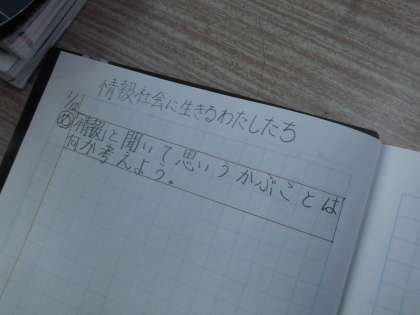 情報社会に生きるわたしたち
め 「情報」と聞いて思いうかぶことは
何か考えよう。